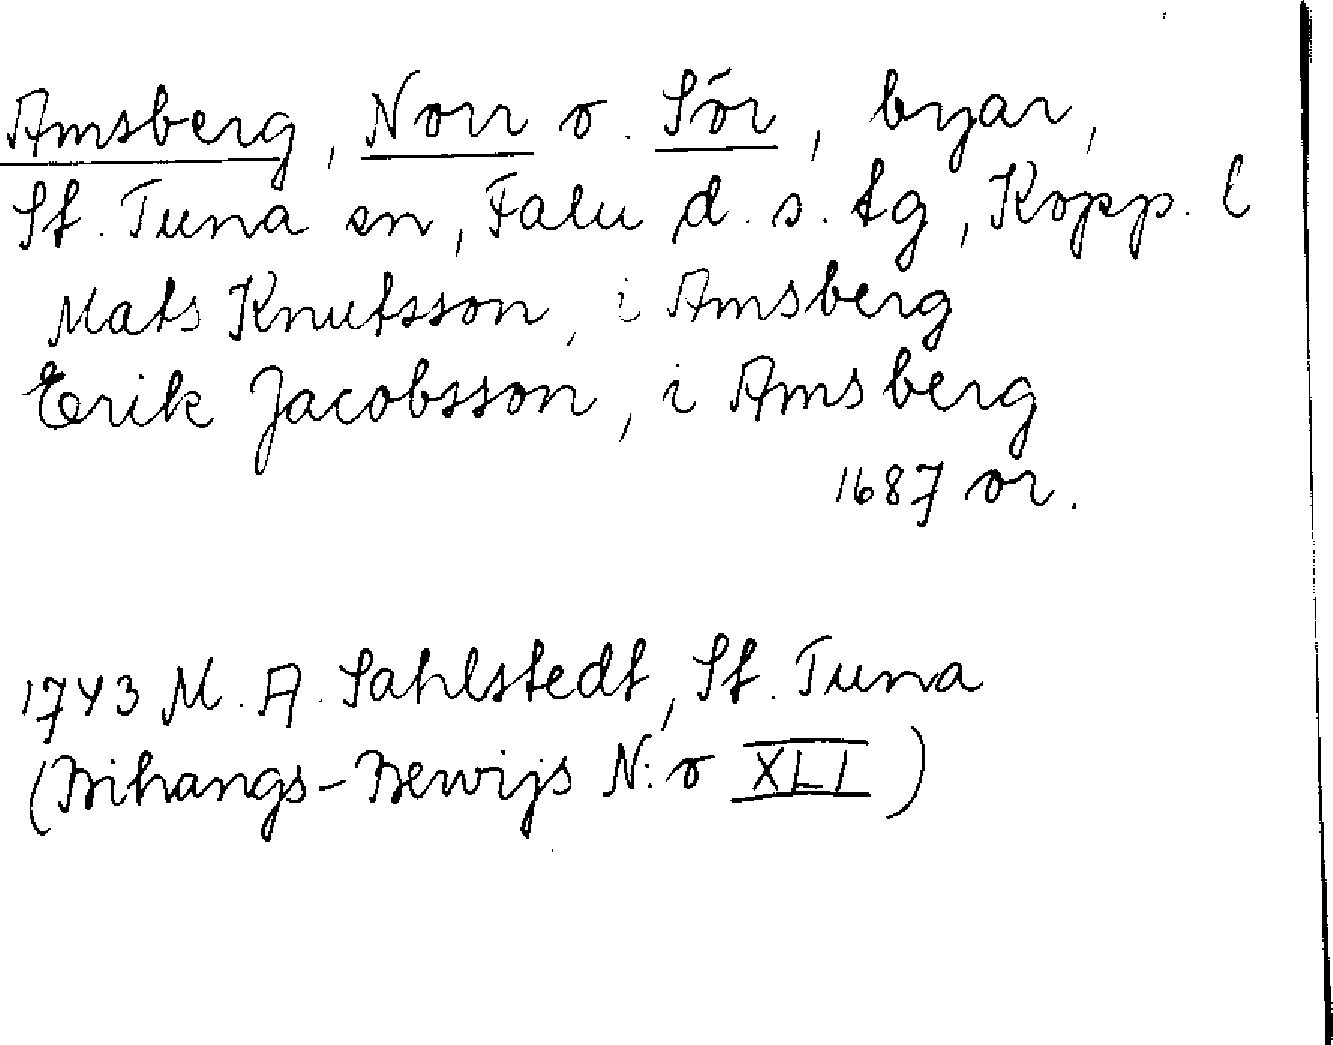 Amsberg, Norr o. Sör, byar,
St. Tuna sn, Falu d. s. tg, Kopp. l
Mats Knutsson, i Amsberg
Erik Jacobsson, i Amsberg
1687 or.
1743 M. A. Sahlstedt, St. Tuna
(Bihangs-Bewijs N:o XLI)